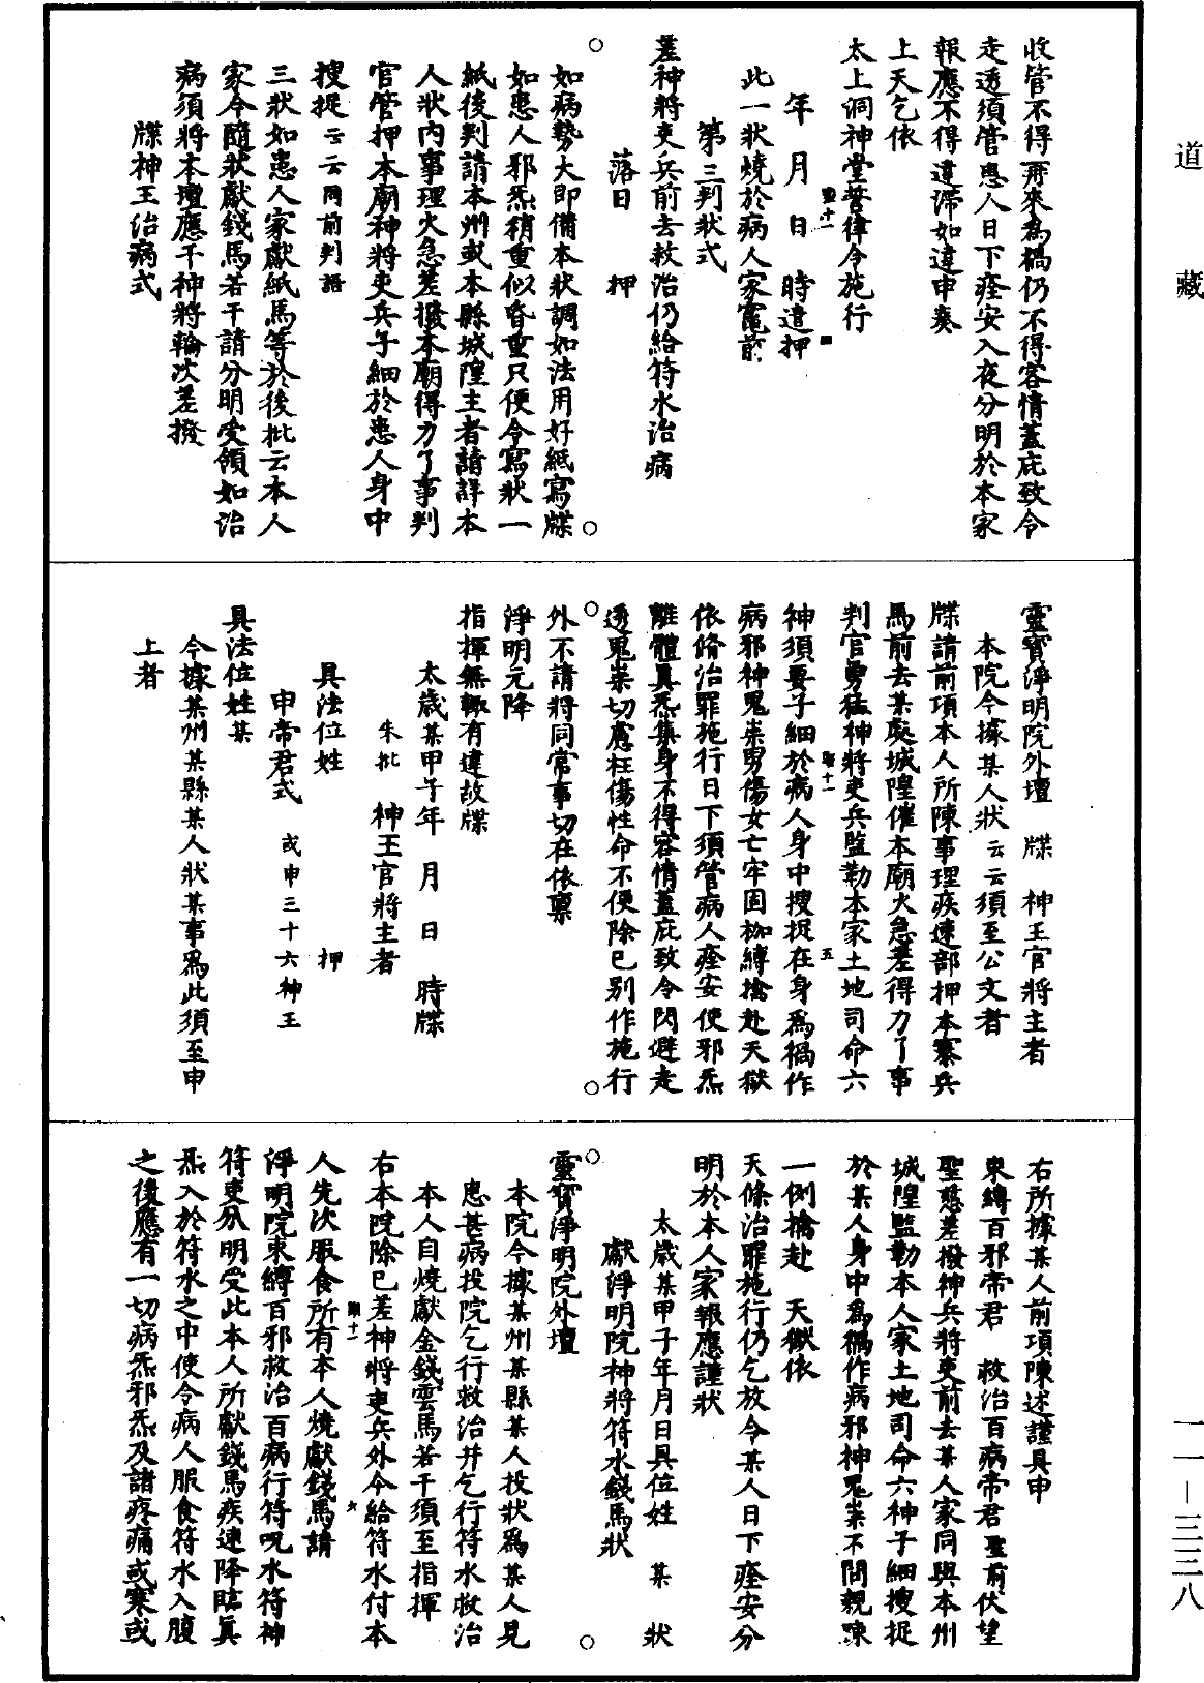 道藏
收管不得再來為禍仍不得容情蓋庇致令
走透須管患人日下痊安入夜分明於本家
報應不得違滯如違申奏
上天乞依
太上洞神堂誓律令施行
年　月　日　時違押
此一狀燒於病人家竈前
第三判狀式
差神將吏兵前去救治仍給符水治病
落日　押
如病勢大即備本狀調如法用好紙寫牒
如患人邪炁稍重似昏重只便令寫狀一
紙後判請本州或本縣城隍主者請詳本
人狀內事理火急差撥本廟得力了事判
官管押本廟神將吏兵子細於患人身中
搜捉云云同前判語
三狀如患人家獻紙馬等於後批云本人
家今隨狀獻錢馬若干請分明受領如治
病須將本壇應干神將輪次差撥
牒神王治病式
靈寶淨明院外壇　牒　神王官將主者
本院今據某人狀云云須至公文者
牒請前項本人所陳事理疾速部押本寨兵
馬前去某處城隍催本廟火急差得力了事
判官勇猛神將吏兵監勒本家土地司命六
神須要子細於病人身中搜捉在身為禍作
病邪神鬼祟男傷女亡牢固枷縛擒赴天獄
依條治罪施行日下須管病人痊安使邪炁
離體真炁集身不得容情蓋庇致令閃避走
透鬼祟切慮枉傷性命不便除已別作施行
外不請將同常事切在依稟
淨明元降
指揮無輙有違故牒
太歲某甲子年　月　日　時牒
朱批　神王官將主者
具法位姓　押
申帝君式　或申三十六神王
具法位姓某
今據某州某縣某人狀某事為此須至申
上者
右所據某人前項陳述謹具申
束縛百邪帝君　救治百病帝君聖前伏望
聖慈差撥神兵將吏前去某人家同與本州
城隍監勒本人家土地司命六神子細搜捉
於某人身中為禍作病邪神鬼祟不問親疎
一例擒赴　天獄依
天條治罪施行仍乞放令某人日下痊安分
明於本人家報應謹狀
太歲某甲子年月日具位姓　某　狀
獻淨明院神將符水錢馬狀
靈寶淨明院外壇
本院今據某州某縣某人投狀為某人見
患甚病投院乞行救治并乞行符水救治
本人自燒獻金錢雲馬若干須至指揮
右本院除已差神將吏兵外今給符水付本
人先次服食所有本人燒獻錢馬請
淨明院束縛百邪救治百病行符呪水符神
符吏分明受此本人所獻錢馬疾速降臨真
炁入於符水之中使令病人服食符水入腹
之後應有一切病炁邪炁及諸疼痛或寒或
一一—三三八